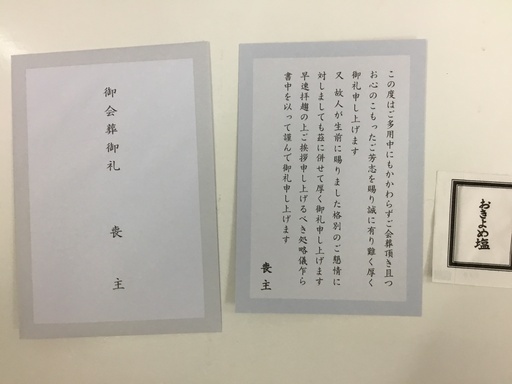 御会葬御礼
喪主
この度はご多用中にもかかわらずご会葬頂き且つ
お心のこもったご芳志を賜り誠に有り難く厚く
御礼申し上げます
又 故人が生前に賜りました格別のご懇情に
対しましても茲に併せて厚く御礼申し上げます
早速拝趨の上ご挨拶申し上げるべき処略儀乍ら
書中を以って謹んで御礼申し上げます
喪主
おきよめ塩